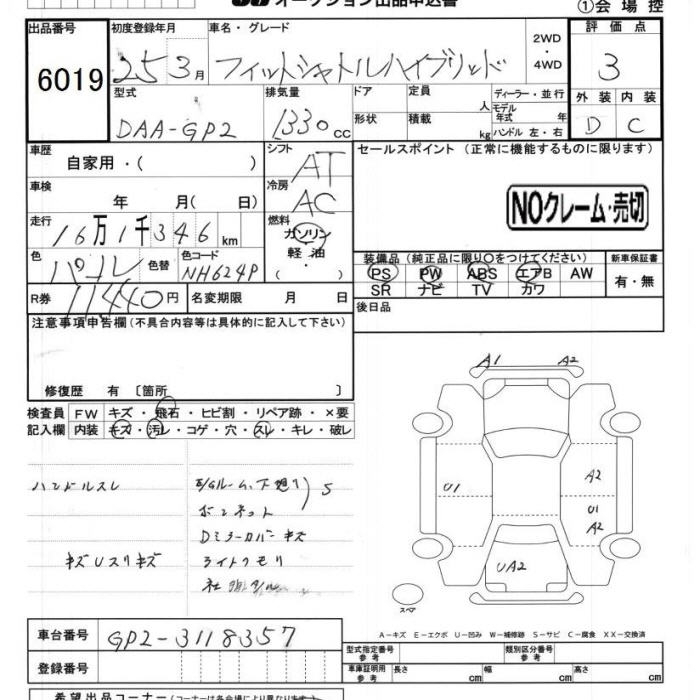 オークション出品申込書
①会場控
出品番号 初度登録年月 車名・グレード 2WD・4WD 評価点
6019 25 3月 フィットシャトルハイブリッド 3
型式 排気量 ドア 定員 人 ディーラー・並行 外装 内装
DAA-GP2 1330cc 形状 積載 kg モデル年式 年 ハンドル 左・右 D C
車歴 シフト セールスポイント (正常に機能するものに限ります)
自家用・( ) AT
車検 年 月( 日) 冷房 AC
NOクレーム・売切
走行 16万1千346km 燃料 ガソリン 軽油・( )
装備品(純正品に限り○をつけてください) 新車保証書
色 パール 色替 色コード NH624P
PS PW ABS エアB AW 有・無
SR ナビ TV カワ
R券 11440円 名変期限 月 日 後日品
注意事項申告欄(不具合内容等は具体的に記入して下さい)
修復歴 有 〔箇所 〕
検査員 FW キズ・飛石・ヒビ割・リペア跡・×要
記入欄 内装 キズ・汚レ・コゲ・穴・スレ・キレ・破レ
ハンドルスレ
E/Gルーム、下廻り)S
ボンネット
Dミラーカバーキズ
キズUスリキズ ライトクモリ
A1 A2
U1 A2
U1
A2
UA2
スペア
A-キズ E-エクボ U-凹み W-補修跡 S-サビ C-腐食 XX-交換済
車台番号 GP2-3118357
型式指定番号 類別区分番号
登録番号
車庫証明用参考 長さ cm 幅 cm 高さ cm
希望出品コーナー(コーナーは各会場により異なります)